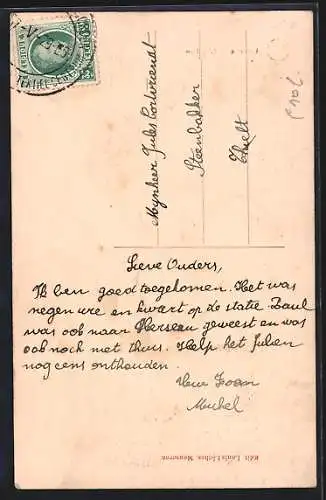 Mynheer Jules Portvriendt
Steenbakker
Thielt
Lieve Ouders,
Ik ben goed toegekomen. Het was
negen ure en kwart op de statie Paul
was ook naar Herseau geweest en was
ook nog niet thuis. Help het Julien
nog eens onthouden.
Uwe Zoon
Michel
Edit. Louis Lichos, Mouscron